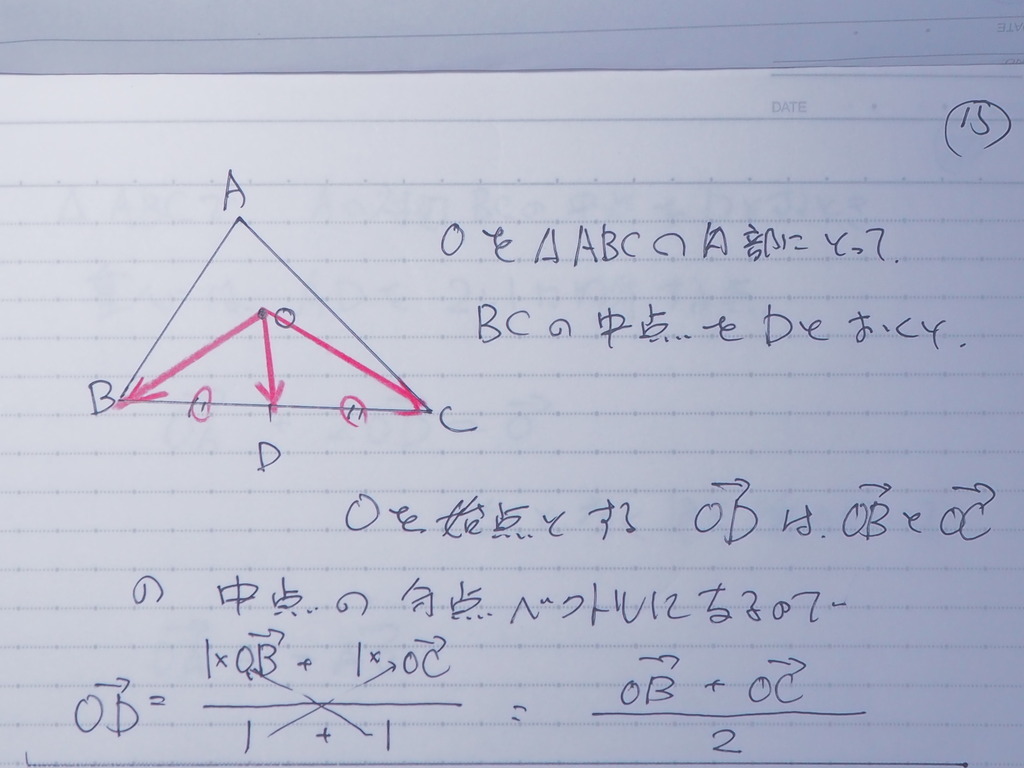 DATE
15
A
Oを△ABCの内部にとって.
O
BCの中点をDとおくと.
B
C
D
Oを始点とする OD→は. OB→とOC→
の 中点の分点ベクトルになるので
OD→ = (1×OB→ + 1×OC→) / (1 + 1) = (OB→ + OC→) / 2